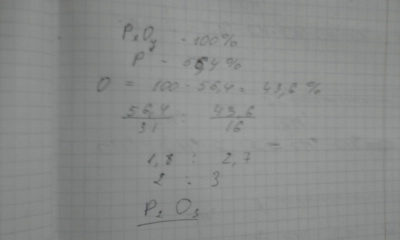 PxOy - 100%
P - 56,4%
O = 100 - 56,4 = 43,6 %
56,4/31 : 43,6/16
1,8 : 2,7
2 : 3
P2 O3